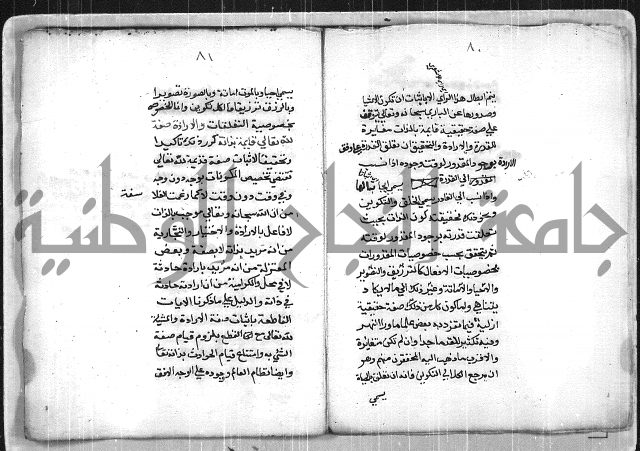 ٨٠
يتم ابطال هذا الراي الا باثبات أن تكون الاشيا
وصدورها عن الباري سبحانه وتعالى يتوقف
على صفة حقيقية قايمة بالذات مغايرة
للقدرة والارادة والتحقيق ان تعلق القدرة على وفق
الارادة بوجود المقدور لوقت وجوده اذا نسب
الى القدرة يسمى ايجابا
واذا نسب الى القادر يسمى الخلق والتكوين
ونحو ذلك فحقيقته كون الذات بحيث
تعلقت قدرته بوجود المقدور لوقته
ثم يتحقق بحسب خصوصيات المقدورات
خصوصيات الافعال كالترزيق والتصوير
والاحياء والاماتة وغير ذلك الى ما لا يكاد
يتناهى واما كون كل من ذلك صفة حقيقية
ازلية فمما تفرد به بعض علماء ما وراء النهر
وفيه تكثير للقدماء جدا وان لم تكن متغايرة
والاقرب ما ذهب اليه المحققون منهم وهو
ان مرجع الكل الى التكوين فانه ان تعلق بالحياة
يسمى
٨١
يسمى احيا وبالموت اماتة وبالصورة تصويرا
وبالرزق ترزيقا فالكل تكوين وانما الخصوص
بخصوصية التعلقات والارادة صفة
لله تعالى قايمة بذاته كرر ذلك تاكيدا
وتحقيقا لاثبات صفة قديمة لله تعالى
تقتضي تخصيص المكونات بوجه دون وجه
وفي وقت دون وقت لا كما زعمت الفلا
سفة
من ان الله سبحانه وتعالى موجب بالذات
لا فاعل بالارادة والاختيار والنجارية
من انه مريد بذاته لا بصفة وبعض
المعتزلة من انه مريد بارادة حادثة
لا في محل والكرامية من ان ارادته حادثة
في ذاته والدليل على ما ذكرنا الايات
الناطقة باثبات صفة الارادة والمشية
لله تعالى مع القطع بلزوم قيام صفة
الشي به وامتناع قيام الحوادث بذاته تعالى
وايضا نظام العالم ووجوده على الوجه الاوفق
جامعة النجاح الوطنية